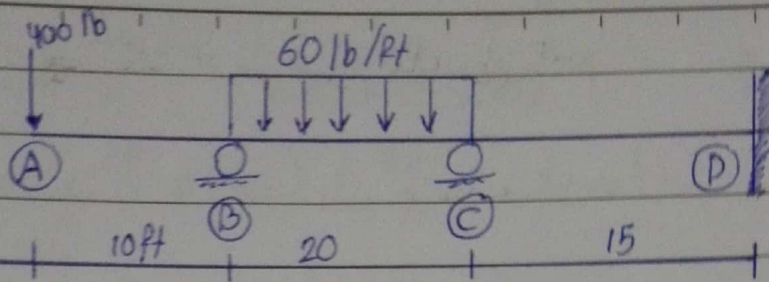 400 lb
60 lb/ft
A
D
B
C
10ft
20
15